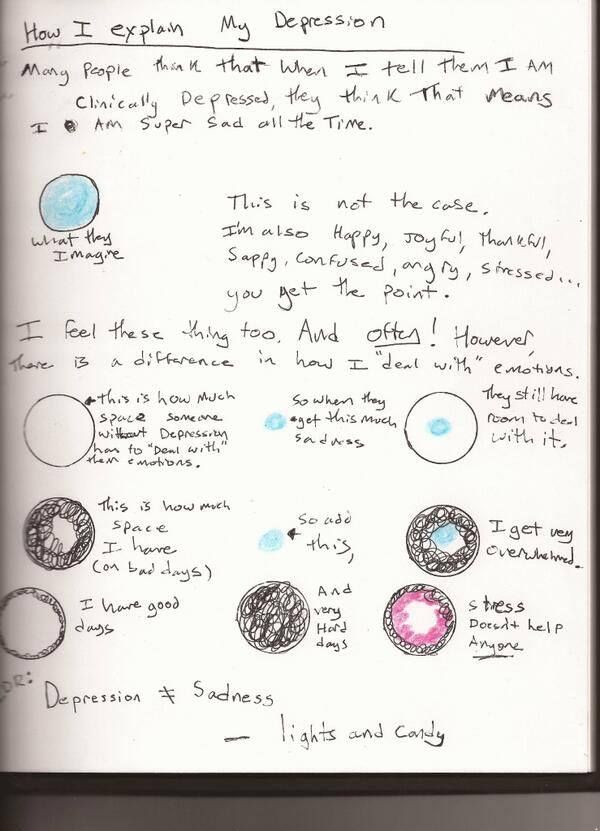 How I explain My Depression
Many People think that When I tell them I AM
Clinically Depressed, they think That means
I AM Super Sad all the Time.
what they
Imagine
This is not the case.
I'm also Happy, Joyful, Thankful,
Sappy, confused, angry, stressed...
you get the point.
I feel these thing too. And often! However,
there is a difference in how I "deal with" emotions.
this is how much
space someone
without Depression
has to "Deal with"
their emotions.
So when they
get this much
sadness
They still have
room to deal
with it.
This is how much
space
I have
(on bad days)
So add
this,
I get very
overwhelmed.
I have good
days
And
very
Hard
days
Stress
Doesn't help
Anyone
DR:
Depression ≠ Sadness
— lights and candy